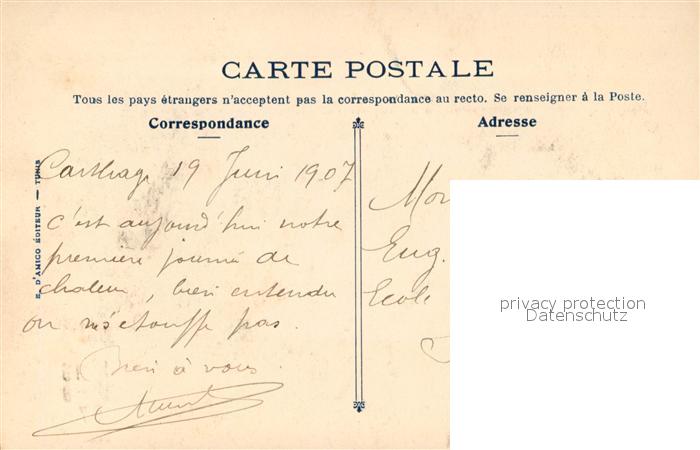 CARTE POSTALE
Tous les pays étrangers n'acceptent pas la correspondance au recto. Se renseigner à la Poste.
Correspondance
Adresse
E. D'AMICO ÉDITEUR — TUNIS
Carthage 19 Juin 1907
c'est aujourd'hui notre
première journée de
chaleur, bien entendu
on n'étouffe pas.
Bien à vous.
Eug.
Ecole
privacy protection
Datenschutz